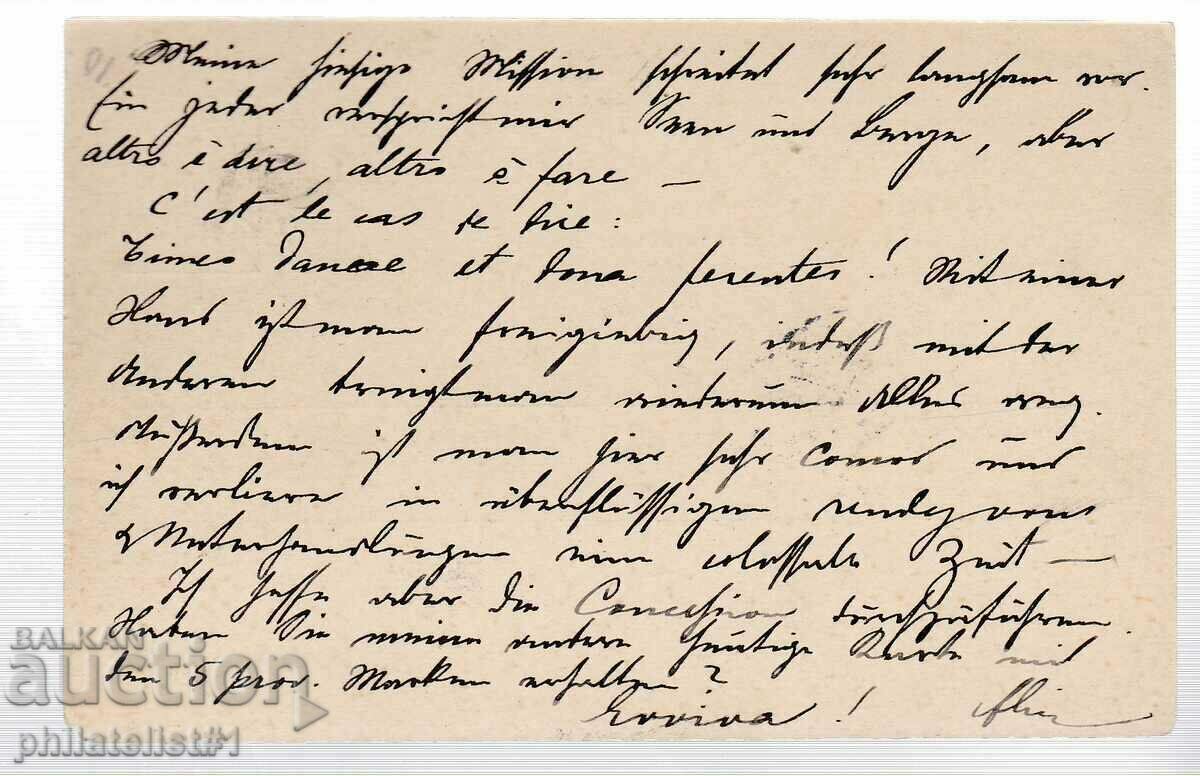 Meine hiesige Mission schreitet sehr langsam vor.
Ein jeder verspricht mir Seen und Berge, aber
altro è dire, altro è fare —
C'est le cas de dire:
Timeo Danaos et dona ferentes! Mit einer
Hand ist man freigiebig, indeß mit der
Anderen bringt man wiederum Alles weg.
Außerdem ist man hier sehr comod und
ich verliere in überflüssigen rendezvous
& Unterhandlungen eine colossale Zeit —
Ich hoffe aber die Concession durchzuführen.
Haben Sie meine andere heutige Karte mit
den 5 prov. Marken erhalten?
Evviva!
BALKAN
auction
philatelist#1